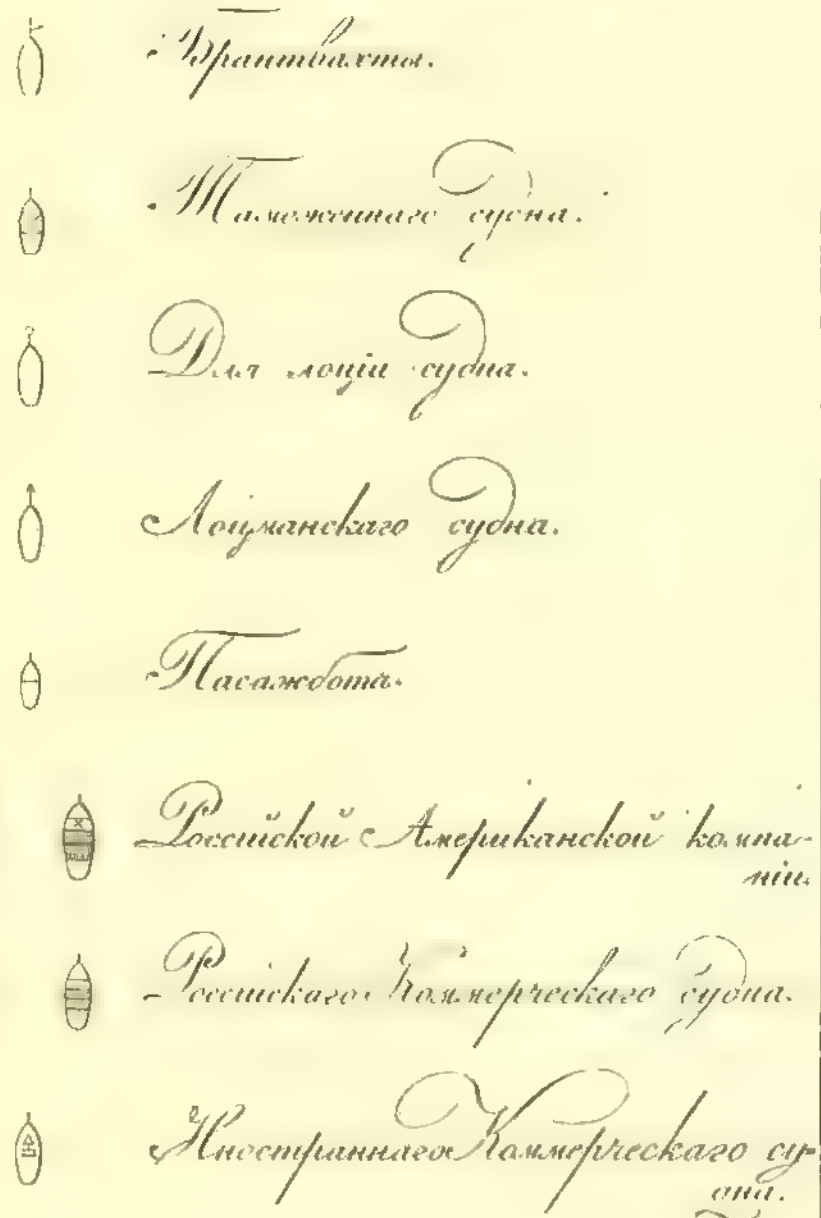 Брантвахты.
Таможеннаго судна.
Для лоціи судна.
Лоцманскаго судна.
Пасажбота.
Россійской Американской компа-
ніи.
Россійскаго Коммерческаго судна.
Иностраннаго Коммерческаго су-
дна.